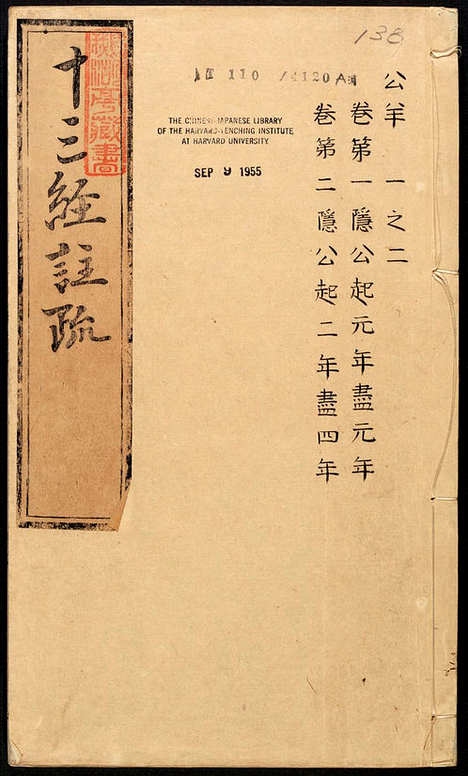 138
110 /4120A
THE CHINESE-JAPANESE LIBRARY
OF THE HARVARD-YENCHING INSTITUTE
AT HARVARD UNIVERSITY
SEP 9 1955
公羊 一之二
卷第一隱公起元年盡元年
卷第二隱公起二年盡四年
十三經註疏
藏書